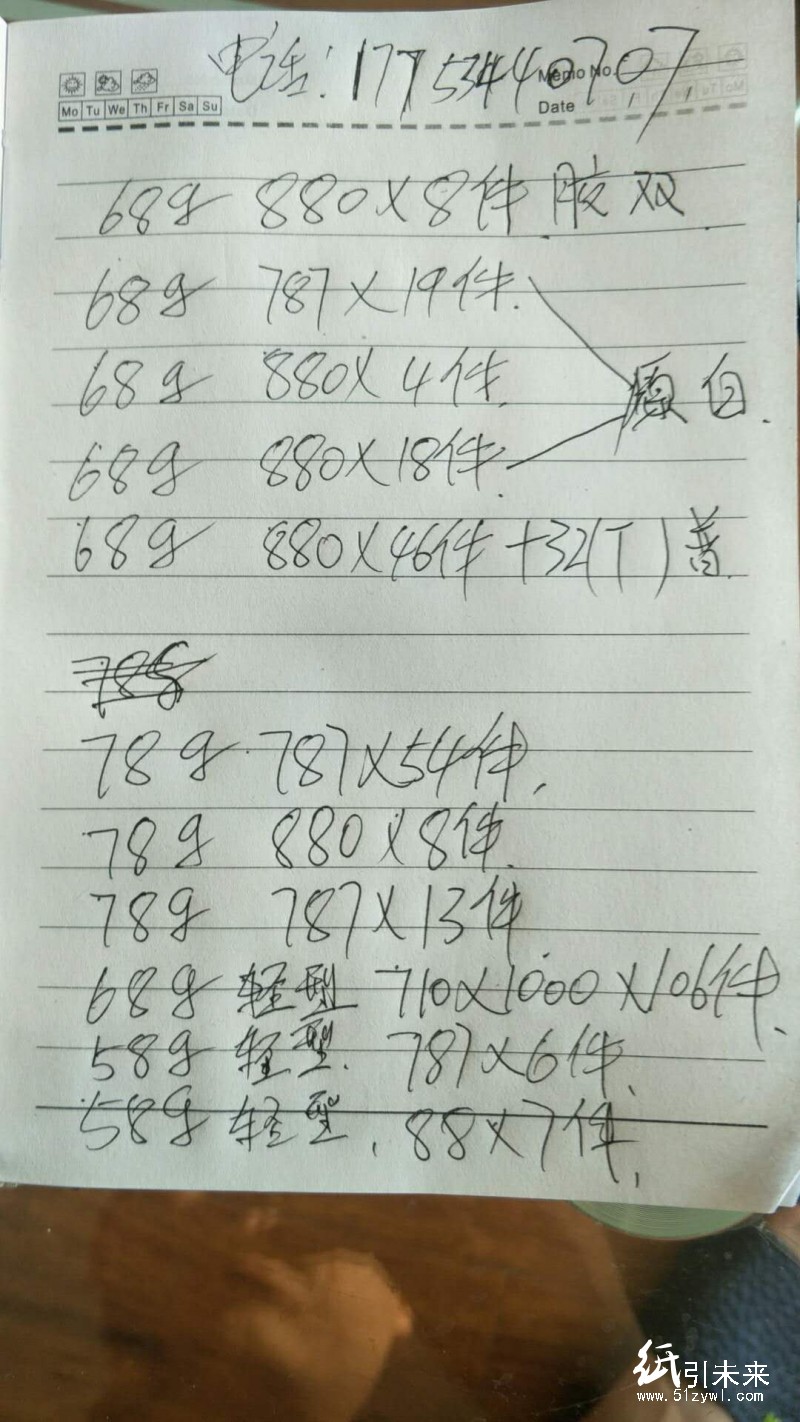 电话:17753440707
Memo No.
Mo Tu We Th Fr Sa Su
Date
68g 880×8件 胶双
68g 787×19件.
68g 880×4件.
原白.
68g 880×18件.
68g 880×46件+32(T)普
78g
78g 787×54件.
78g 880×8件.
78g 787×13件
68g 轻型 710×1000×106件.
58g 轻型. 787×6件.
58g 轻型, 88×7件,
纸引未来
www.51zywl.com